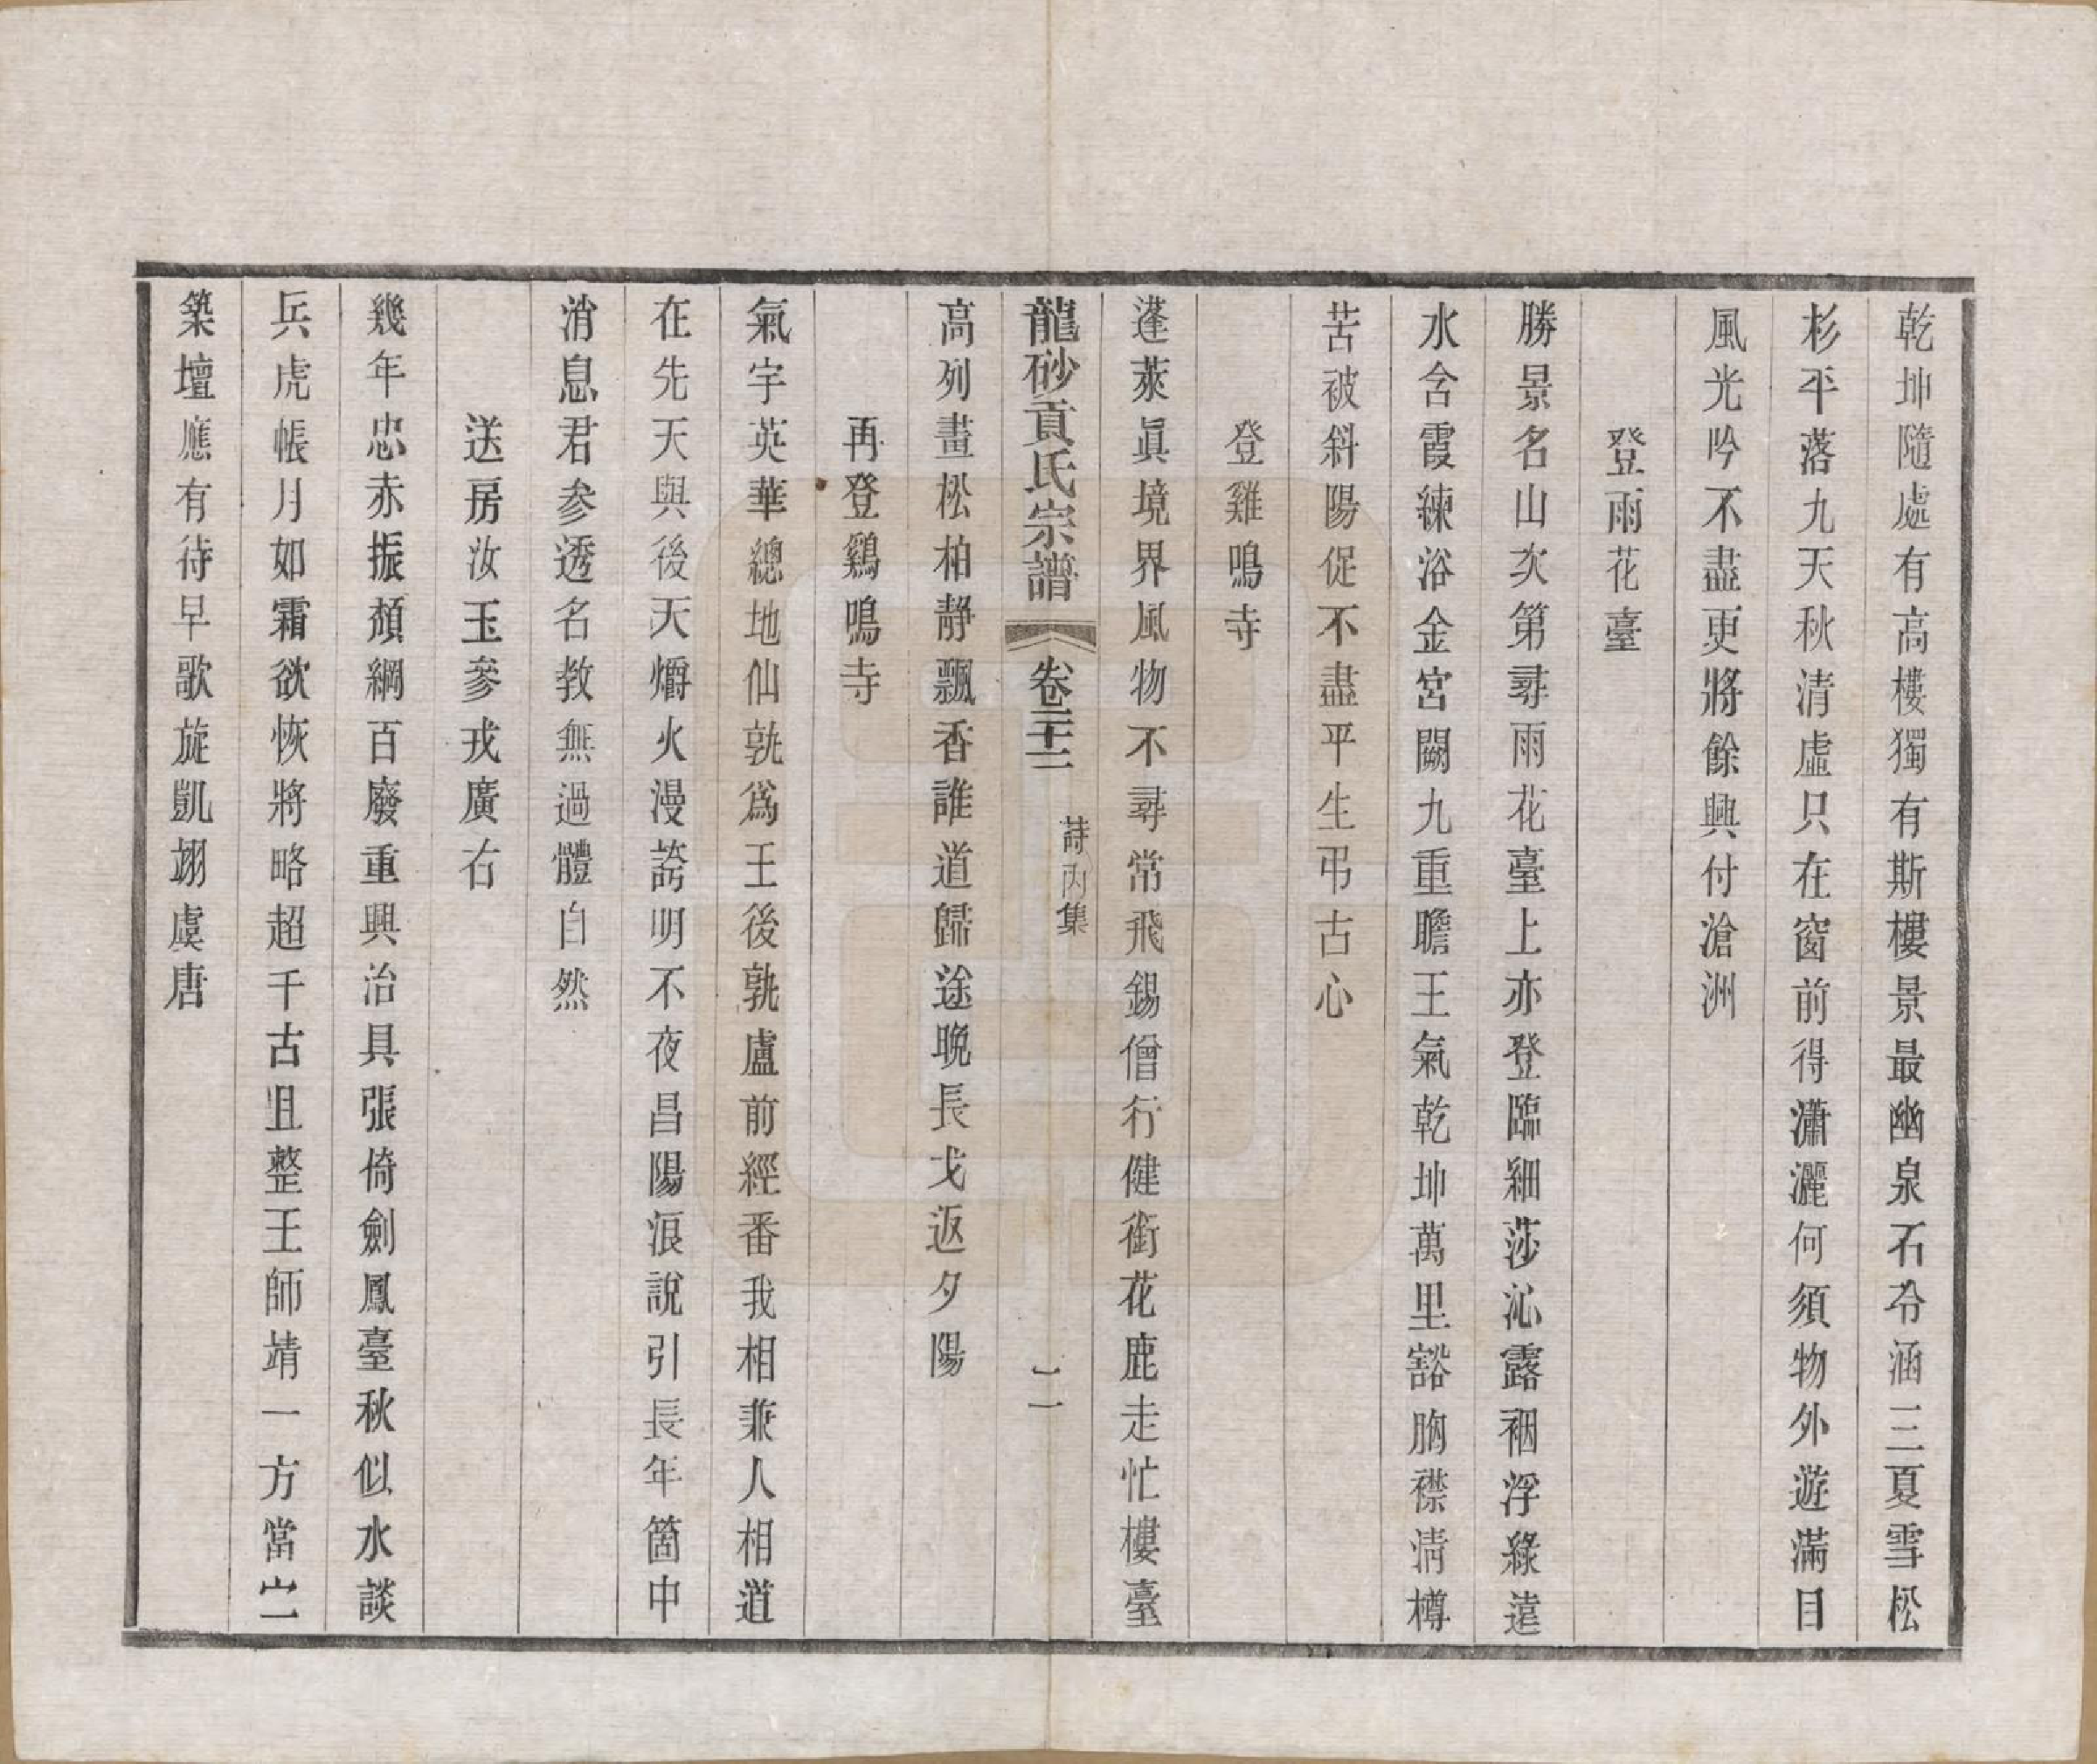 乾坤隨處有高樓獨有斯樓景最幽泉石冷涵三夏雪松
杉平落九天秋清虛只在窗前得瀟灑何須物外遊滿目
風光吟不盡更將餘興付滄洲
登雨花臺
勝景名山次第尋雨花臺上亦登臨細莎沁露裀浮綠遠
水含霞練浴金宮闕九重瞻王氣乾坤萬里豁胸襟淸樽
苦被斜陽促不盡平生弔古心
登雞鳴寺
蓬萊眞境界風物不尋常飛錫僧行健銜花鹿走忙樓臺
龍砂貢氏宗譜 卷二十二 詩內集 二
高列畫松柏靜飄香誰道歸途晚長戈返夕陽
再登鷄鳴寺
氣宇英華總地仙孰爲王後孰盧前經番我相兼人相道
在先天與後天爝火漫誇明不夜昌陽浪說引長年箇中
消息君參透名教無過體自然
送房汝玉參戎廣右
幾年忠赤振頹綱百廢重興治具張倚劍鳳臺秋似水談
兵虎帳月如霜欲恢將略超千古且整王師靖一方當宁
築壇應有待早歌旋凱翊虞唐